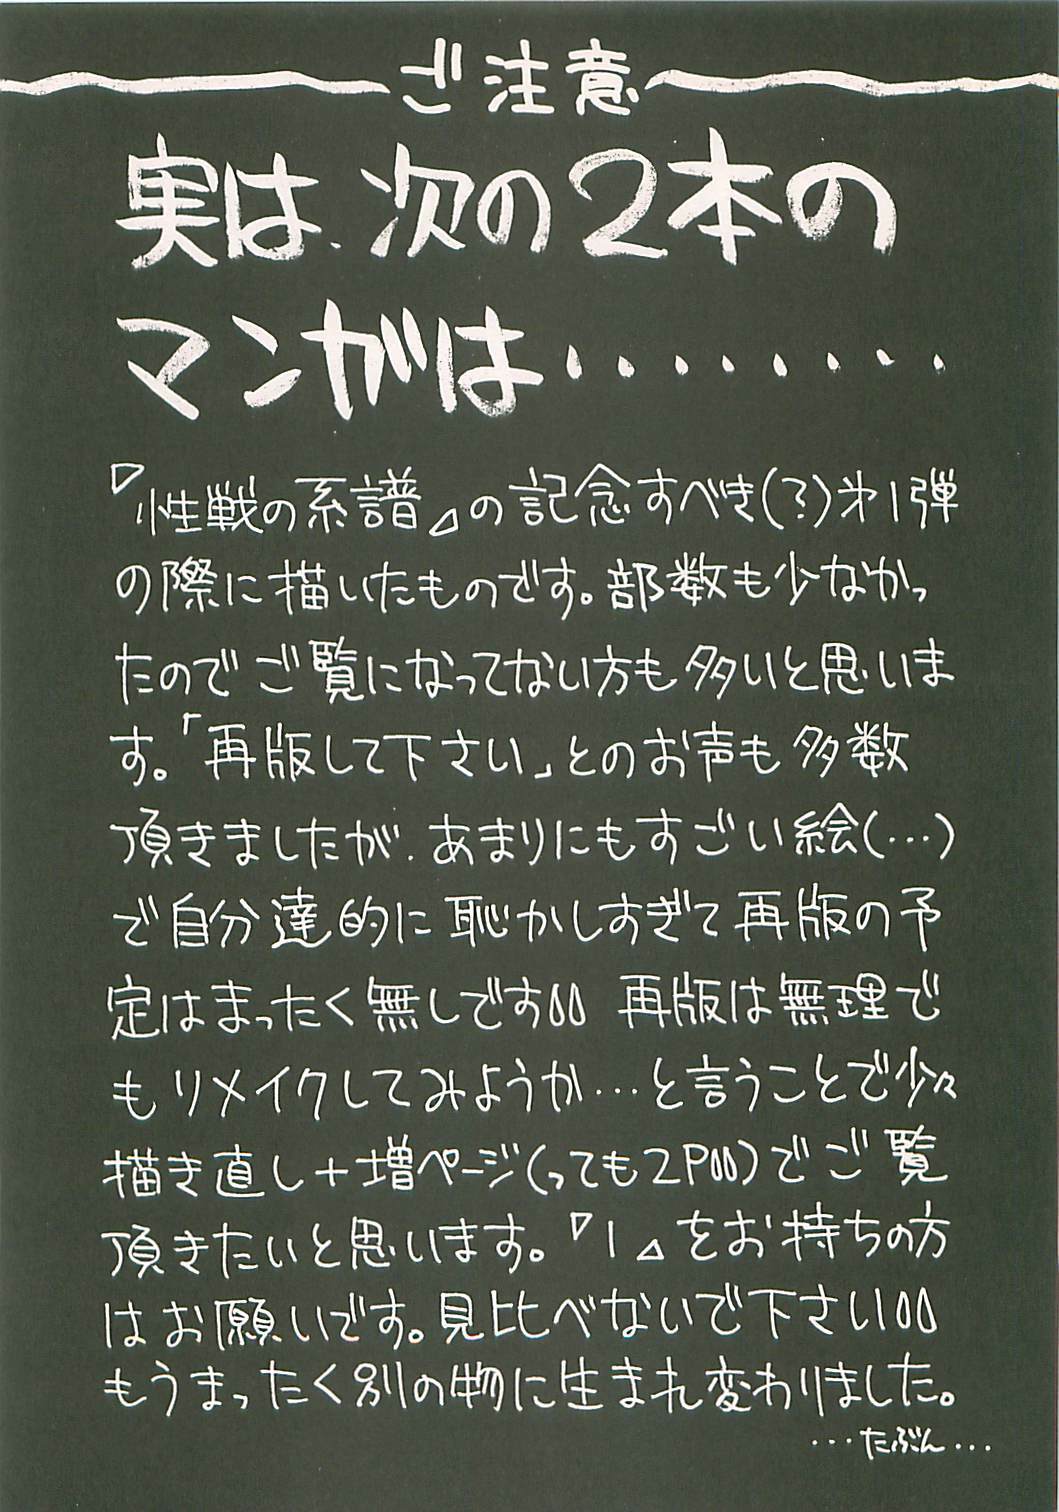 ご注意
実は、次の2本の
マンガは・・・・・・・・
『性戦の系譜』の記念すべき(?)オ1弾
の際に描いたものです。部数も少なかっ
たのでご覧になってない方も多いと思いま
す。「再版して下さい」とのお声も多数
頂きましたが、あまりにもすごい絵(…)
で自分達的に恥かしすぎて再版の予
定はまったく無しです 再版は無理で
もリメイクしてみようか…と言うことで少々
描き直し+増ページ(っても2P)でご覧
頂きたいと思います。『1』をお持ちの方
はお願いです。見比べないで下さい
もうまったく別の物に生まれ変わりました。
…たぶん…